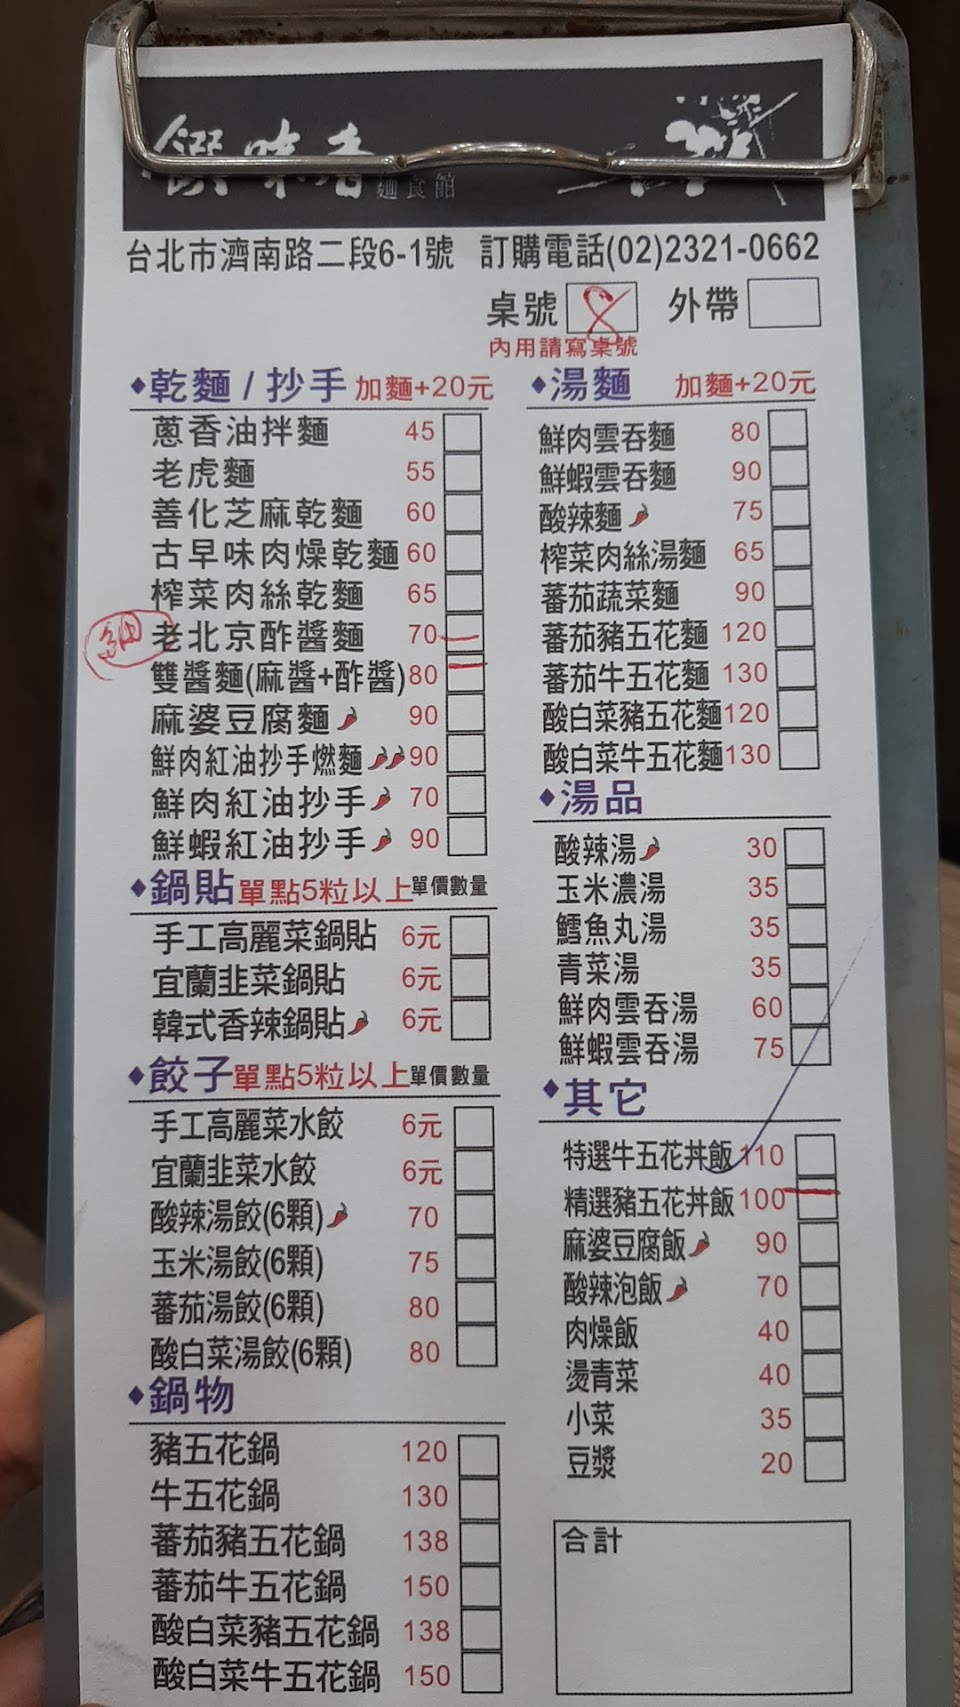 饌味香 麵食館
台北市濟南路二段6-1號 訂購電話(02)2321-0662
桌號 8 外帶
內用請寫桌號
◆乾麵 / 抄手 加麵+20元
蔥香油拌麵 45
老虎麵 55
善化芝麻乾麵 60
古早味肉燥乾麵 60
榨菜肉絲乾麵 65
細 老北京酢醬麵 70
雙醬麵(麻醬+酢醬) 80
麻婆豆腐麵 90
鮮肉紅油抄手燃麵 90
鮮肉紅油抄手 70
鮮蝦紅油抄手 90
◆鍋貼 單點5粒以上 單價數量
手工高麗菜鍋貼 6元
宜蘭韭菜鍋貼 6元
韓式香辣鍋貼 6元
◆餃子 單點5粒以上 單價數量
手工高麗菜水餃 6元
宜蘭韭菜水餃 6元
酸辣湯餃(6顆) 70
玉米湯餃(6顆) 75
蕃茄湯餃(6顆) 80
酸白菜湯餃(6顆) 80
◆鍋物
豬五花鍋 120
牛五花鍋 130
蕃茄豬五花鍋 138
蕃茄牛五花鍋 150
酸白菜豬五花鍋 138
酸白菜牛五花鍋 150
◆湯麵 加麵+20元
鮮肉雲吞麵 80
鮮蝦雲吞麵 90
酸辣麵 75
榨菜肉絲湯麵 65
蕃茄蔬菜麵 90
蕃茄豬五花麵 120
蕃茄牛五花麵 130
酸白菜豬五花麵 120
酸白菜牛五花麵 130
◆湯品
酸辣湯 30
玉米濃湯 35
鱈魚丸湯 35
青菜湯 35
鮮肉雲吞湯 60
鮮蝦雲吞湯 75
◆其它
特選牛五花丼飯 110
精選豬五花丼飯 100
麻婆豆腐飯 90
酸辣泡飯 70
肉燥飯 40
燙青菜 40
小菜 35
豆漿 20
合計